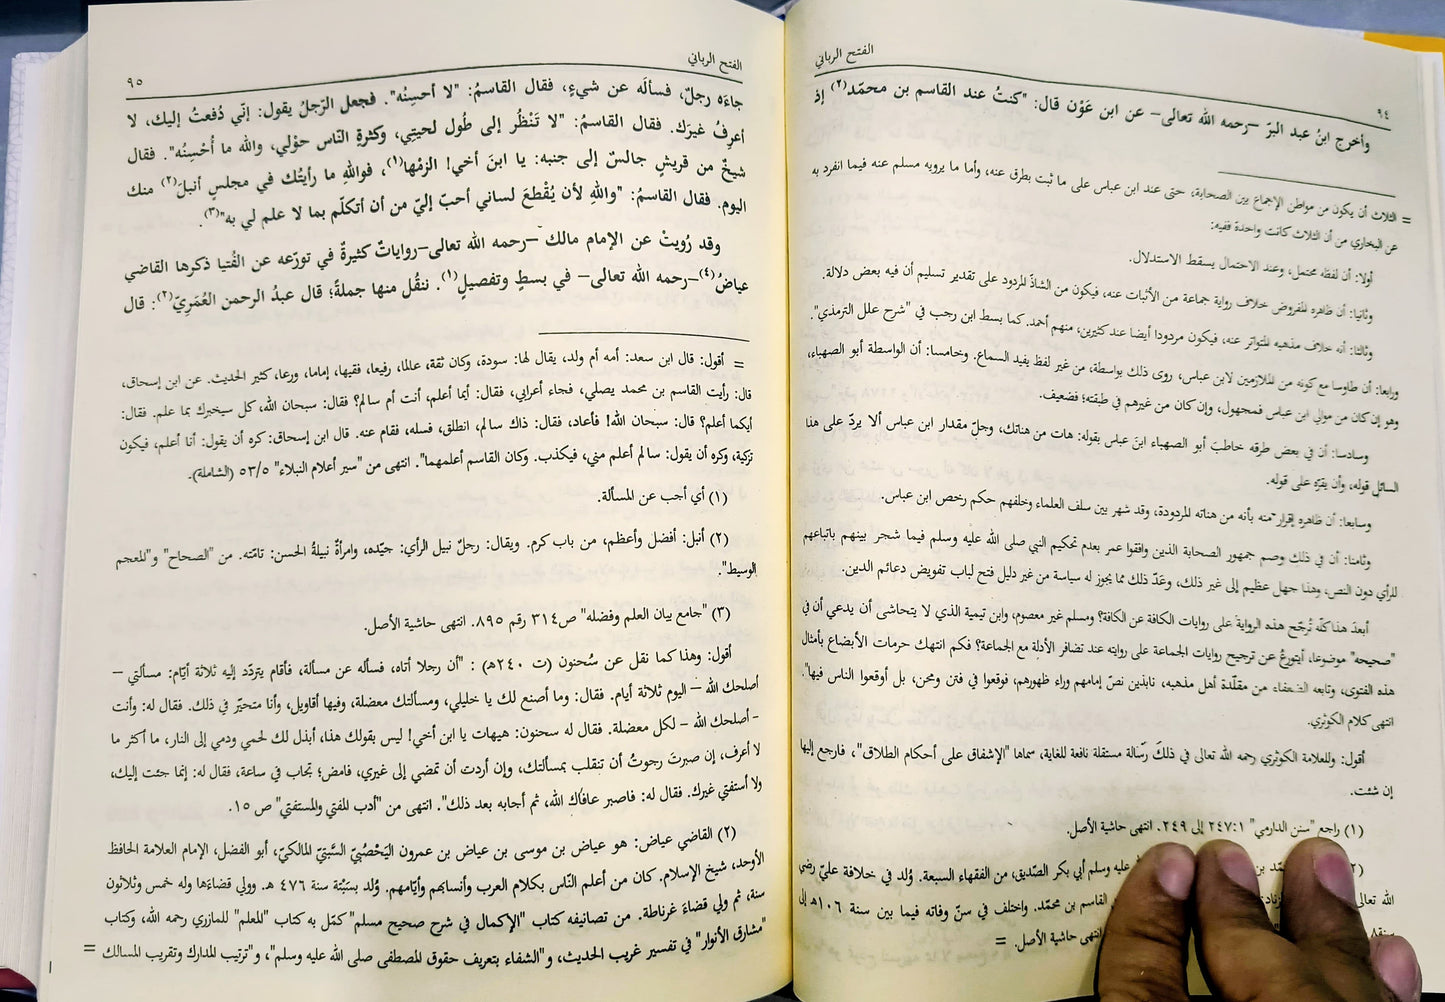 الفتح الرباني
٩٤
وأخرج ابنُ عبد البرّ –رحمه الله تعالى– عن ابن عَوْن قال: "كنتُ عند القاسم بن محمّد(٢) إذ
= الثلاث أن يكون من مواطن الإجماع بين الصحابة، حتى عند ابن عباس على ما ثبت بطرق عنه، وأما ما يرويه مسلم عنه فيما انفرد به
عن البخاري من أن الثلاث كانت واحدة ففيه:
أولا: أن لفظه محتمل، وعند الاحتمال يسقط الاستدلال.
وثانيا: أن ظاهره المفروض خلاف رواية جماعة من الأثبات عنه، فيكون من الشاذّ المردود على تقدير تسليم أن فيه بعض دلالة.
وثالثا: أنه خلاف مذهبه المتواتر عنه، فيكون مردودا أيضا عند كثيرين، منهم أحمد. كما بسط ابن رجب في "شرح علل الترمذي".
ورابعا: أن طاوسا مع كونه من الملازمين لابن عباس، روى ذلك بواسطة، من غير لفظ يفيد السماع. وخامسا: أن الواسطة أبو الصهباء،
وهو إن كان من موالي ابن عباس فمجهول، وإن كان من غيرهم في طبقته؛ فضعيف.
وسادسا: أن في بعض طرقه خاطبَ أبو الصهباء ابنَ عباس بقوله: هات من هناتك، وجلّ مقدار ابن عباس ألا يردّ على هذا
السائل قوله، وأن يقرّه على قوله.
وسابعا: أن ظاهره إقرار منه بأنه من هناته المردودة، وقد شهر بين سلف العلماء وخلفهم حكم رخص ابن عباس.
وثامنا: أن في ذلك وصم جمهور الصحابة الذين وافقوا عمر بعدم تحكيم النبي صلى الله عليه وسلم فيما شجر بينهم باتباعهم
للرأي دون النص، وهذا جهل عظيم إلى غير ذلك، وعَدّ ذلك مما يجوز له سياسة من غير دليل فتح لباب تفويض دعائم الدين.
أبعدَ هذا كلّه تُرجّح هذه الرواية على روايات الكافة عن الكافة؟ ومسلم غير معصوم، وابن تيمية الذي لا يتحاشى أن يدعي أن في
"صحيحه" موضوعا، أيتورعُ عن ترجيح روايات الجماعة على روايته عند تضافر الأدلة مع الجماعة؟ فكم انتهك حرمات الأبضاع بأمثال
هذه الفتوى، وتابعه الضعفاء من مقلّدة أهل مذهبه، نابذين نصّ إمامهم وراء ظهورهم، فوقعوا في فتن ومحن، بل أوقعوا الناس فيها".
انتهى كلام الكوثري.
أقول: وللعلامة الكوثري رحمه الله تعالى في ذلك رسالة مستقلة نافعة للغاية، سماها "الإشفاق على أحكام الطلاق"، فارجع إليها
إن شئت.
(١) راجع "سنن الدارمي" ٢٤٧:١ إلى ٢٤٩. انتهى حاشية الأصل.
(٢ مّد بن عليه وسلم أبي بكر الصّديق، من الفقهاء السبعة. وُلد في خلافة عليّ رضي
الله تعالى القاسم بن محمّد. واختلف في سنّ وفاته فيما بين سنة ١٠٦هـ إلى
سنة انتهى حاشية الأصل. =
الفتح الرباني
٩٥
جاءَه رجلٌ، فسألَه عن شيءٍ، فقال القاسمُ: "لا أحسِنُه". فجعل الرّجلُ يقول: إنّي دُفعتُ إليك، لا
أعرِفُ غيرَك. فقال القاسمُ: "لا تَنْظُر إلى طُول لحيتِي، وكثرةِ النّاس حوْلي، والله ما أُحْسِنُه". فقال
شيخٌ من قريشٍ جالسٌ إلى جنبه: يا ابنَ أخي! الزمْها(١)، فواللهِ ما رأيتُك في مجلسٍ أنبلَ(٢) منك
اليوم. فقال القاسمُ: "واللهِ لأن يُقْطعَ لساني أحبّ إليّ من أن أتكلّم بما لا علم لي به"(٣).
وقد رُويتْ عن الإمام مالك –رحمه الله تعالى– رواياتٌ كثيرةٌ في تورّعه عن الفُتيا ذكرها القاضي
عياضُ(٤) –رحمه الله تعالى– في بسطٍ وتفصيلٍ(١). ننقُل منها جملةً؛ قال عبدُ الرحمن العُمَرِيّ(٢): قال
= أقول: قال ابن سعد: أمه أم ولد، يقال لها: سودة، وكان ثقة، عالما، رفيعا، فقيها، إماما، ورعا، كثير الحديث. عن ابن إسحاق،
قال: رأيت القاسم بن محمد يصلي، فجاء أعرابي، فقال: أيما أعلم، أنت أم سالم؟ فقال: سبحان الله، كل سيخبرك بما علم. فقال:
أيكما أعلم؟ قال: سبحان الله! فأعاد، فقال: ذاك سالم، انطلق، فسله، فقام عنه. قال ابن إسحاق: كره أن يقول: أنا أعلم، فيكون
تزكية، وكره أن يقول: سالم أعلم مني، فيكذب. وكان القاسم أعلمهما". انتهى من "سير أعلام النبلاء" ٥٣/٥ (الشاملة).
(١) أي أجب عن المسألة.
(٢) أنبل: أفضل وأعظم، من باب كرم. ويقال: رجلٌ نبيل الرأي: جيّده، وامرأةٌ نبيلةُ الحسن: تامّته. من "الصحاح" و"المعجم
الوسيط".
(٣) "جامع بيان العلم وفضله" ص٣١٤ رقم ٨٩٥. انتهى حاشية الأصل.
أقول: وهذا كما نقل عن سُحنون (ت ٢٤٠هـ) : "أن رجلا أتاه، فسأله عن مسألة، فأقام يتردّد إليه ثلاثة أيّام: مسألتي –
أصلحك الله – اليوم ثلاثة أيام. فقال: وما أصنع لك يا خليلي، ومسألتك معضلة، وفيها أقاويل، وأنا متحيّر في ذلك. فقال له: وأنت
– أصلحك الله – لكل معضلة. فقال له سحنون: هيهات يا ابن أخي! ليس بقولك هذا، أبذل لك لحمي ودمي إلى النار، ما أكثر ما
لا أعرف، إن صبرتَ رجوتُ أن تنقلب بمسألتك، وإن أردت أن تمضي إلى غيري، فامض؛ تجاب في ساعة، فقال له: إنما جئت إليك،
ولا أستفتي غيرك. فقال له: فاصبر عافاك الله، ثم أجابه بعد ذلك". انتهى من "أدب المفتي والمستفتي" ص ١٥.
(٢) القاضي عياض: هو عياض بن موسى بن عياض بن عمرون اليَحْصُبِيّ السَّبتِيّ المالكيّ، أبو الفضل، الإمام العلامة الحافظ
الأوحد، شيخ الإسلام. كان من أعلم النّاس بكلام العرب وأنسابهم وأيّامهم. وُلد بسَبْتة سنة ٤٧٦ هـ. وولي قضاءَها وله خمس وثلاثون
سنة، ثم ولي قضاءَ غرناطة. من تصانيفه كتاب "الإكمال في شرح صحيح مسلم" كمّل به كتاب "المعلم" للمازري رحمه الله، وكتاب
"مشارق الأنوار" في تفسير غريب الحديث، و"الشفاء بتعريف حقوق المصطفى صلى الله عليه وسلم"، و"ترتيب المدارك وتقريب المسالك =